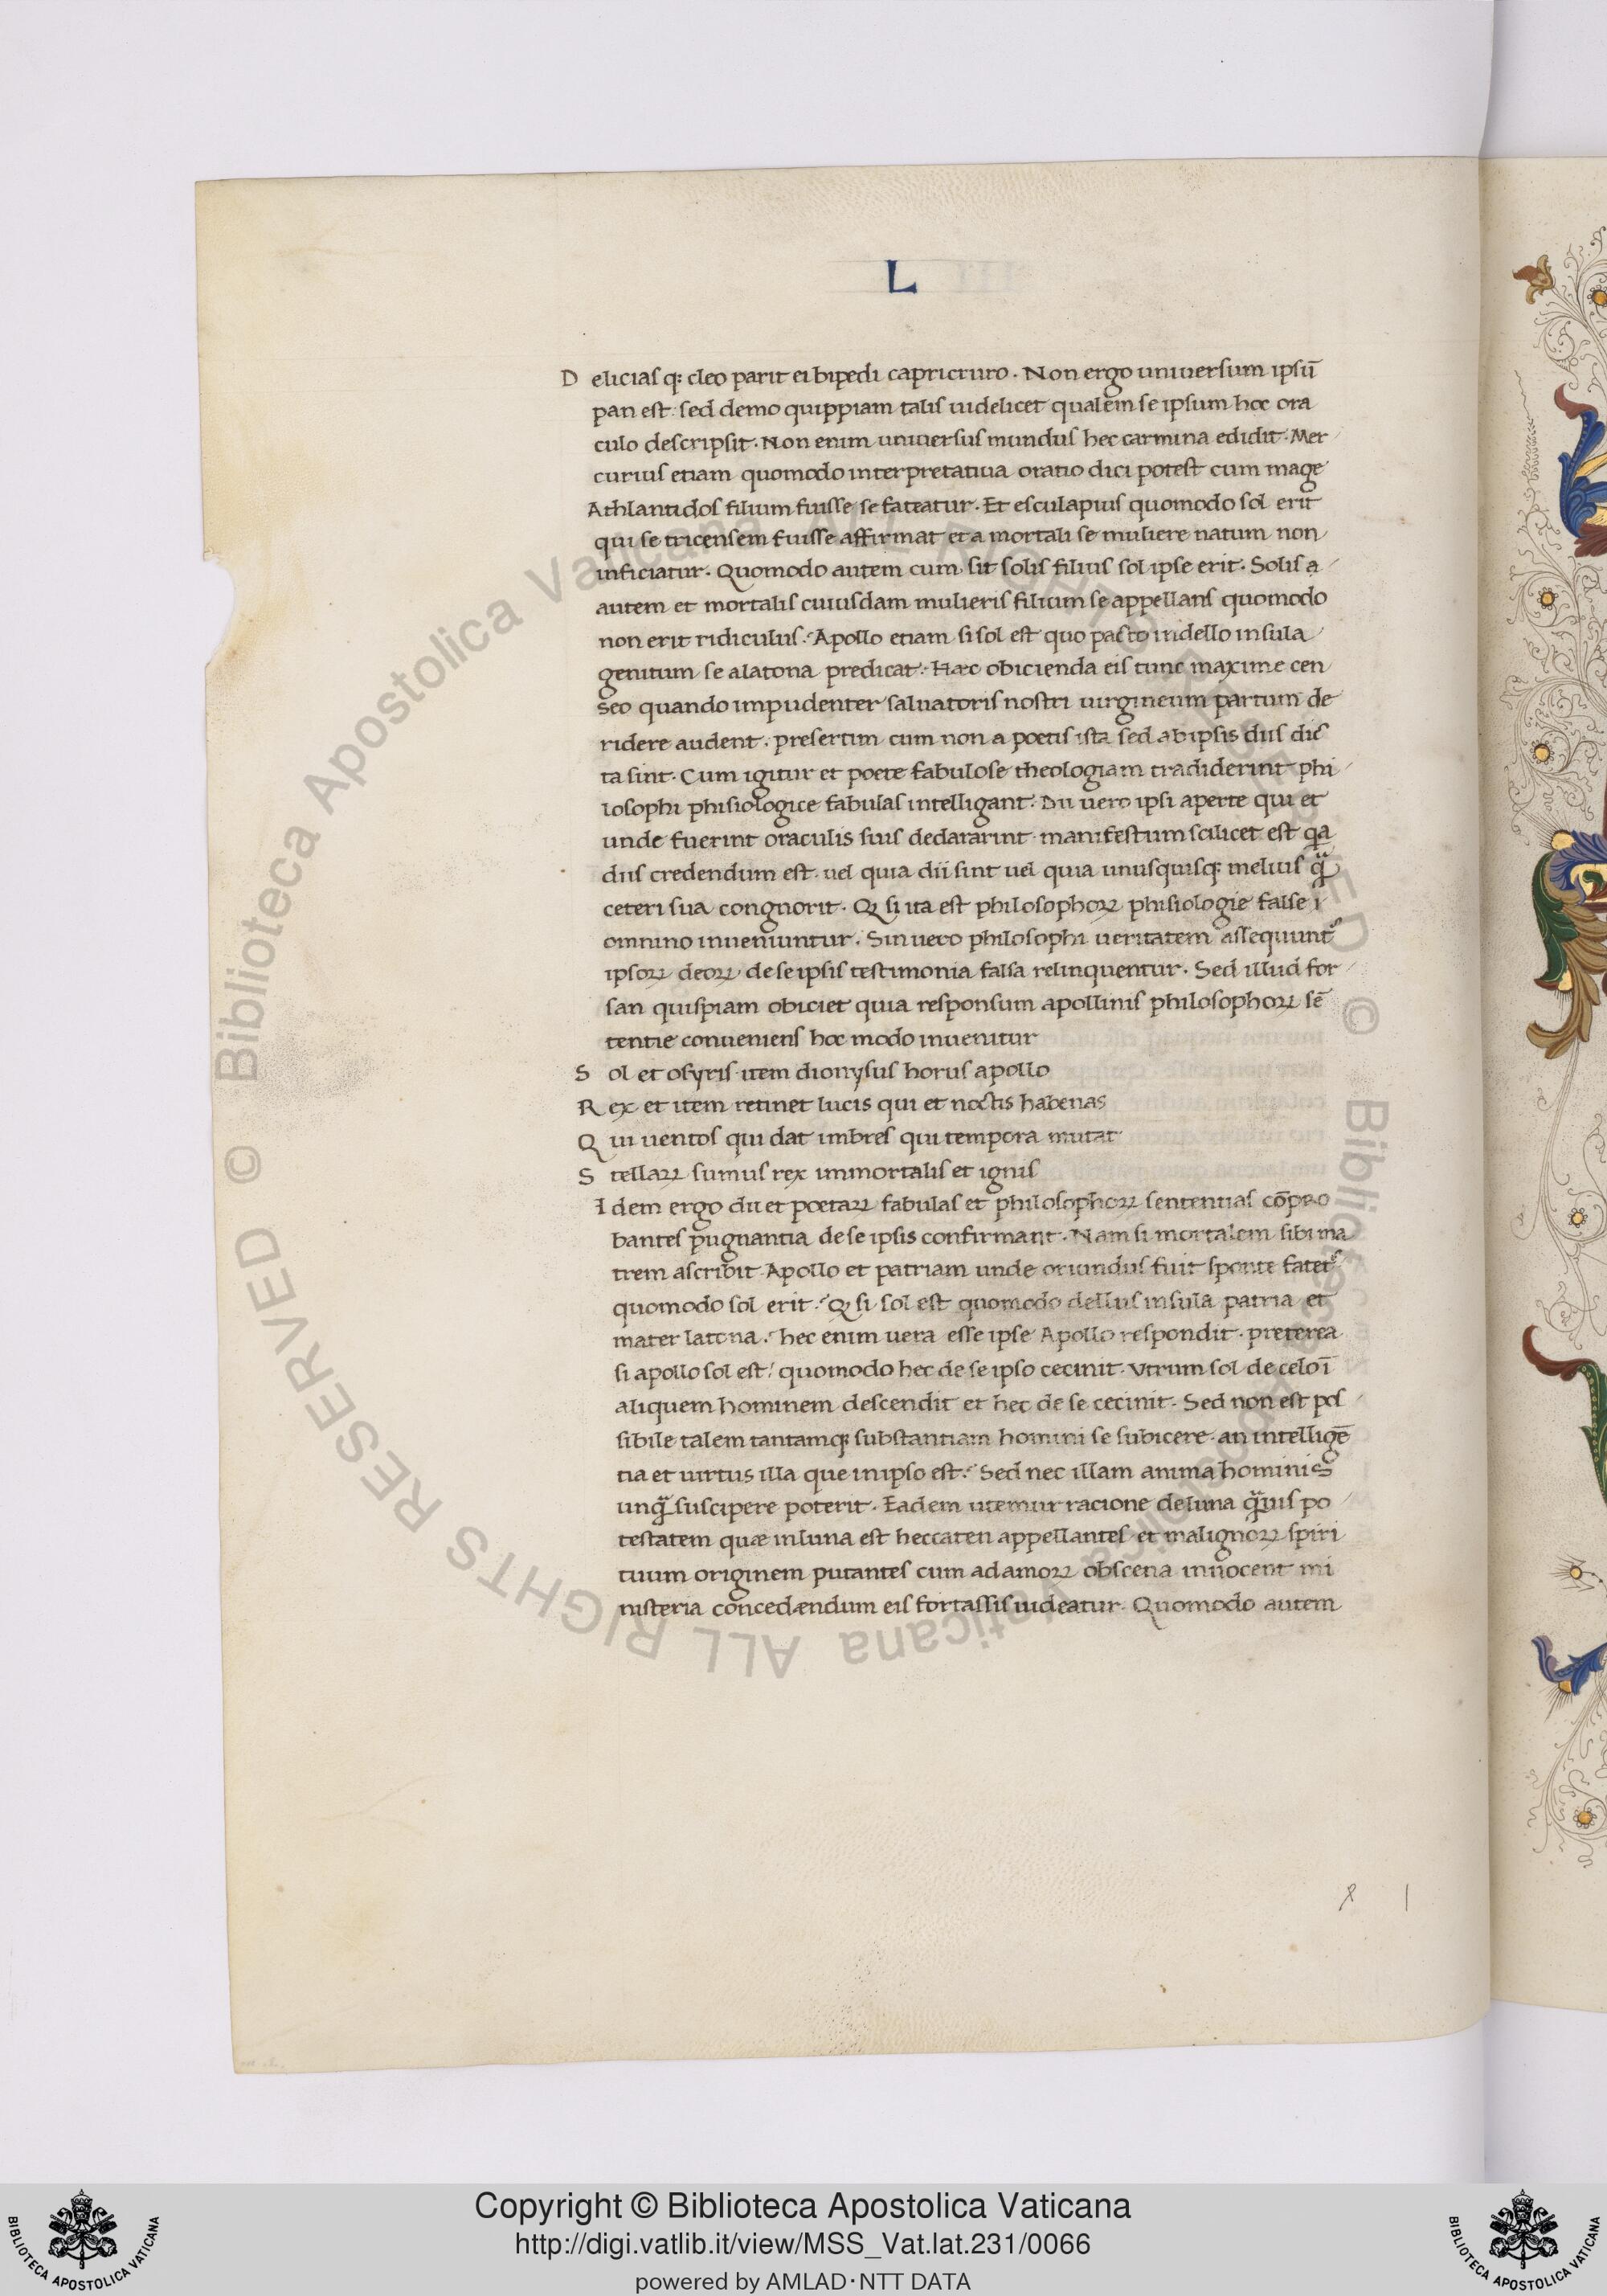 L
D elicias q; cleo parit ei bipedi capricturo. Non ergo uniuersum ipsū
pan est. sed demo quippiam talis uidelicet qualem se ipsum hoc ora
culo descripsit. Non enim uniuersus mundus hec carmina edidit. Mer
curius etiam quomodo interpretatiua oratio dici potest cum mage
Athlantidos filium fuisse se fateatur. Et esculapius quomodo sol erit
qui se tricensem fuisse affirmat et a mortali se muliere natum non
inficiatur. Quomodo autem cum sit solis filius sol ipse erit. Solis a
autem et mortalis cuiusdam mulieris filium se appellans quomodo
non erit ridiculus. Apollo etiam si sol est quo pacto indello insula
genitum se a latona predicat. Hæc obicienda eis tunc maxime cen
seo quando impudenter saluatoris nostri uirgineum partum de
ridere audent. presertim cum non a poetis ista sed ab ipsis diis dic
ta sint. Cum igitur et poete fabulose theologiam tradiderint phi
losophi phisiologice fabulas intelligant. Dii uero ipsi aperte qui et
unde fuerint oraculis suis declararint. manifestum scilicet est qa
diis credendum est. uel quia dii sint uel quia unusquisq; melius q̄
ceteri sua congnorit. Q si ita est philosophoꝝ phisiologie false i
omnino inueniuntur. Sin uero philosophi ueritatem assequunt᷒
ipsoꝝ deoꝝ de se ipsis testimonia falsa relinquentur. Sed illud for
san quispiam obiciet quia responsum apollinis philosophoꝝ sē
tentie conueniens hoc modo inuenitur
S ol et osyris item dionysus horus apollo
R ex et item retinet lucis qui et noctis habenas
Q ui uentos qui dat imbres qui tempora mutat
S tellaꝝ sumus rex immortalis et ignis
I dem ergo dii et poetaꝝ fabulas et philosophoꝝ sententias cōpro
bantes pugnantia de se ipsis confirmant. Nam si mortalem sibi ma
trem ascribit Apollo et patriam unde oriundus fuit sponte fatet᷒
quomodo sol erit. Q si sol est quomodo dellus insula patria et
mater latona. hec enim uera esse ipse Apollo respondit. preterea
si apollo sol est. quomodo hec de se ipso cecinit. Vtrum sol de celo ī
aliquem hominem descendit et hec de se cecinit. Sed non est pos
sibile talem tantamq; substantiam homini se subicere. an intelligē
tia et uirtus illa que in ipso est. Sed nec illam anima hominis
unq̄ suscipere poterit. Eadem utemur racione de luna q̄uis po
testatem quæ in luna est heccaten appellantes et malignoꝝ spiri
tuum originem putantes cum ad amoꝝ obscena inuocent mi
nisteria concedændum eis fortassis uideatur. Quomodo autem
© Biblioteca Apostolica Vaticana ALL RIGHTS RESERVED © Biblioteca Apostolica Vaticana ALL RIGHTS RESERVED
Copyright © Biblioteca Apostolica Vaticana
http://digi.vatlib.it/view/MSS_Vat.lat.231/0066
powered by AMLAD·NTT DATA
BIBLIOTECA APOSTOLICA VATICANA
BIBLIOTECA APOSTOLICA VATICANA